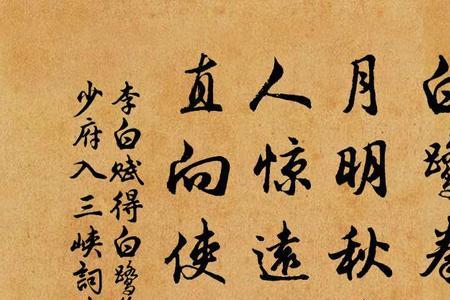 白鹭拳
月明秋
人惊遠
直向使
李白赋得白鹭
少府入三峡詞